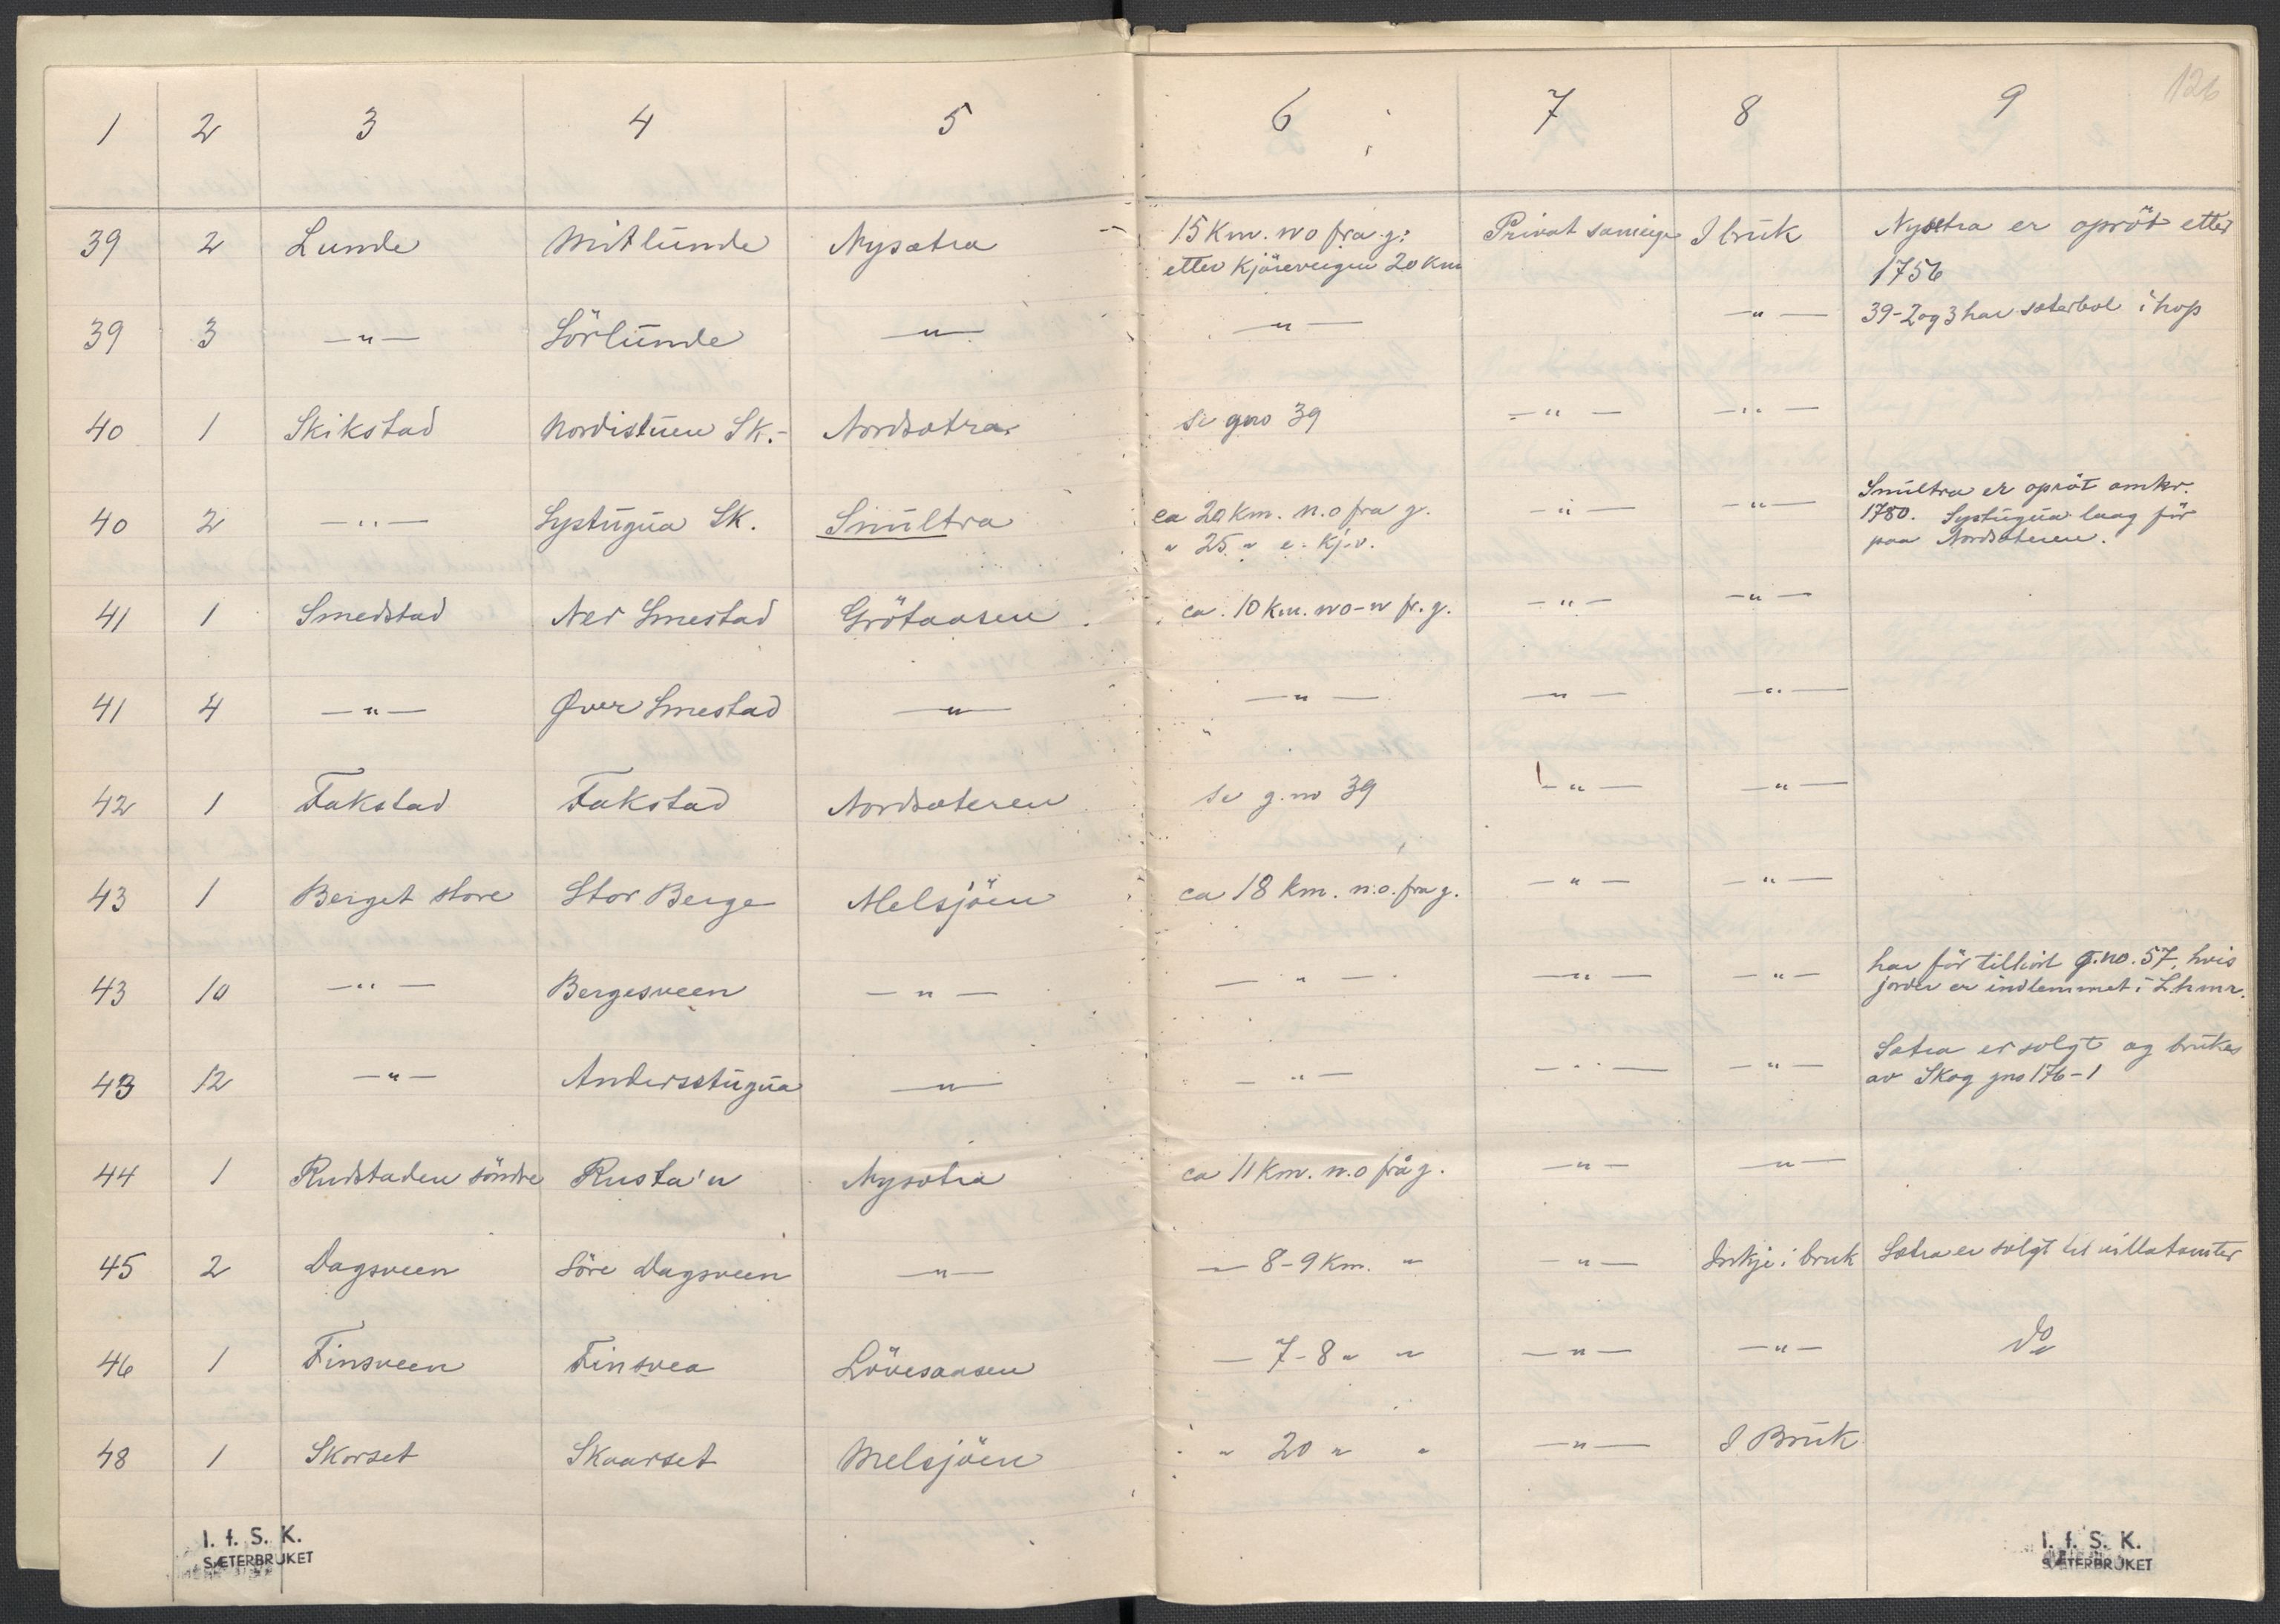 126
1 2 3 4 5 6 7 8 9
39 2 Lunde Mitlunde Nysætra 15 Km. no fra g: Privat sameige I bruk Nysetra er opröt etter
etter Kjöreveigen 20 Km 1756
39 3 —"— Sörlunde —"— —"— —"— 39-2 og 3 har sæterbol ihop
40 1 Skikstad Nordistuen Sk.- Nordsætra. se gno 39 —"— —"—
40 2 —"— Systugua Sk. Smultra ca 20 Km. n.o fra g. —"— —"— Smultra er opröt omkr.
" 25 " e. Kj.v. 1780. Systugua laag för
paa Nordsæteren.
41 1 Smedstad Ner Smestad Grötaasen ca. 10 Km. no-n fr. g. —"— —"—
41 4 —"— Øver Smestad —"— —"— —"— —"—
42 1 Fakstad Fakstad Nordsæteren se g.no 39 —"— —"—
43 1 Berget store Stor Berge Melsjöen ca 18 km. n.o. fra g. —"— —"—
43 10 —"— Bergesveen —"— —"— —"— —"— har för tilhört g.no. 57, hvis
jorder er indlemmet i Lhmr.
43 12 —"— Andersstugua —"— —"— —"— —"— Sætra er solgt og brukes
av Skog gno 176-1
44 1 Rudstaden söndre Rusta'n Nysætra ca 11 Km. n.o frå g. —"— —"—
45 2 Dagsveen Söre Dagsveen —"— — 8-9 Km. " —"— Inkje i bruk Sætra er solgt til villatomter
46 1 Finsveen Finsvea Lövesaasen — 7-8 " " —"— —"— do
48 1 Skorset Skaarset Melsjöen " 20 " " —"— I Bruk
I. f. S. K.
SÆTERBRUKET
I. f. S. K.
SÆTERBRUKET